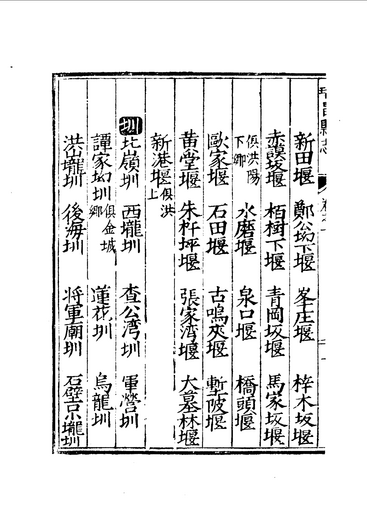 新田堰 鄭公坳下堰 峯庄堰 梓木坂堰
赤謨堎堰 栢樹下堰 青岡坂堰 馬家坂堰
俱洪陽下鄉 水磨堰 泉口堰 橋頭堰
歐家堰 石田堰 古鳴夾堰 蹔陂堰
黄堂堰 朱杵坪堰 張家濟堰 大墓林堰
新港堰 俱洪上
圳 北嶺圳 西壠圳 查公湾圳 軍營圳
譚家坳圳 俱金城鄉 蓮花圳 烏龍圳
洪山壠圳 後海圳 將軍廟圳 石壁小壠圳